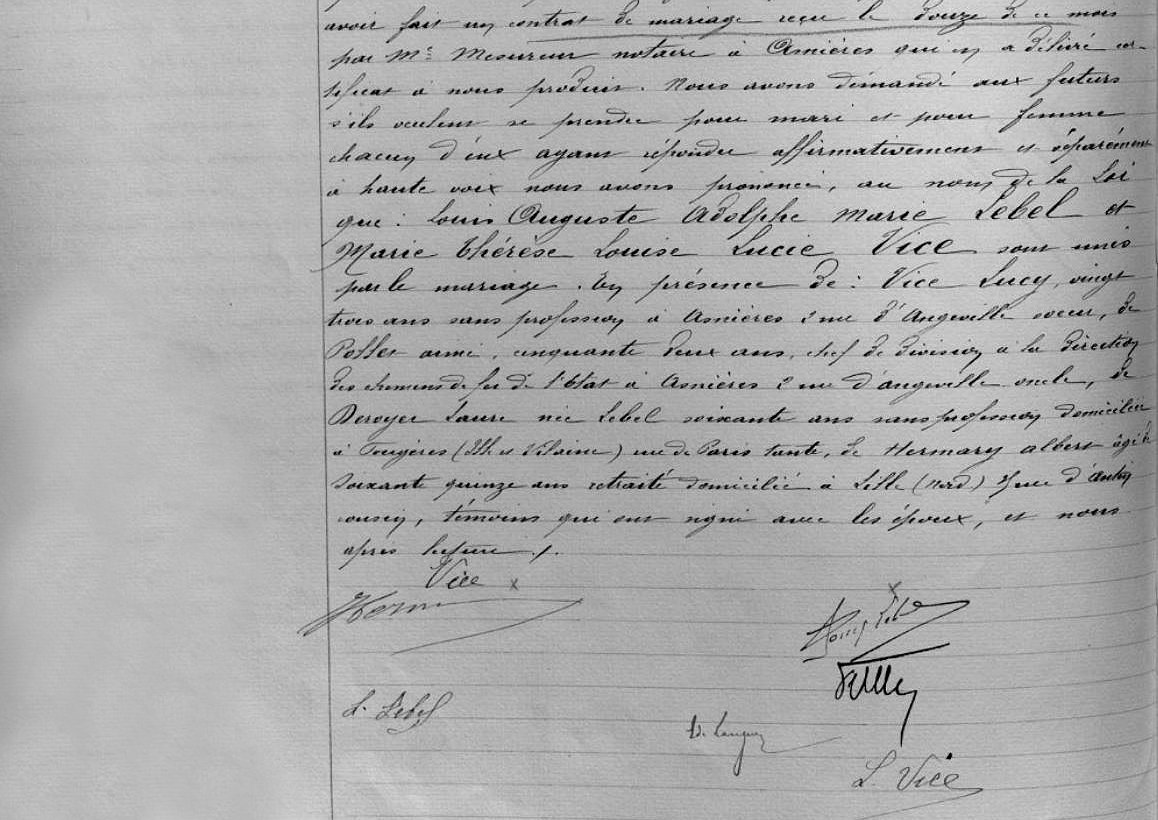 avoir fait un contrat de mariage reçu le douze de ce mois
par Me Mesureur notaire à Asnières qui en a délivré cer-
tificat à nous produit. Nous avons demandé aux futurs
s'ils veulent se prendre pour mari et pour femme
chacun d'eux ayant répondu affirmativement et séparément
à haute voix nous avons prononcé, au nom de la Loi
que : Louis Auguste Adolphe Marie Lebel et
Marie Thérèse Louise Lucie Vice sont unis
par le mariage. En présence de : Vice Lucy, vingt
trois ans sans profession à Asnières 2 rue d'Angeville soeur, de
cinquante deux ans, chef de division à la direction
des chemins de fer de l'Etat à Asnières 2 rue d'angeville oncle, de
Deroyer Laure née Lebel soixante ans sans profession domiciliée
à Fougères (Ille et Vilaine) rue de Paris tante, de Hermary albert âgé de
soixante quinze ans retraité domicilié à Lille (Nord) rue d'
cousin, témoins qui ont signé avec les époux, et nous
après lecture ./.
Vice
L. Lebel
L. Vice